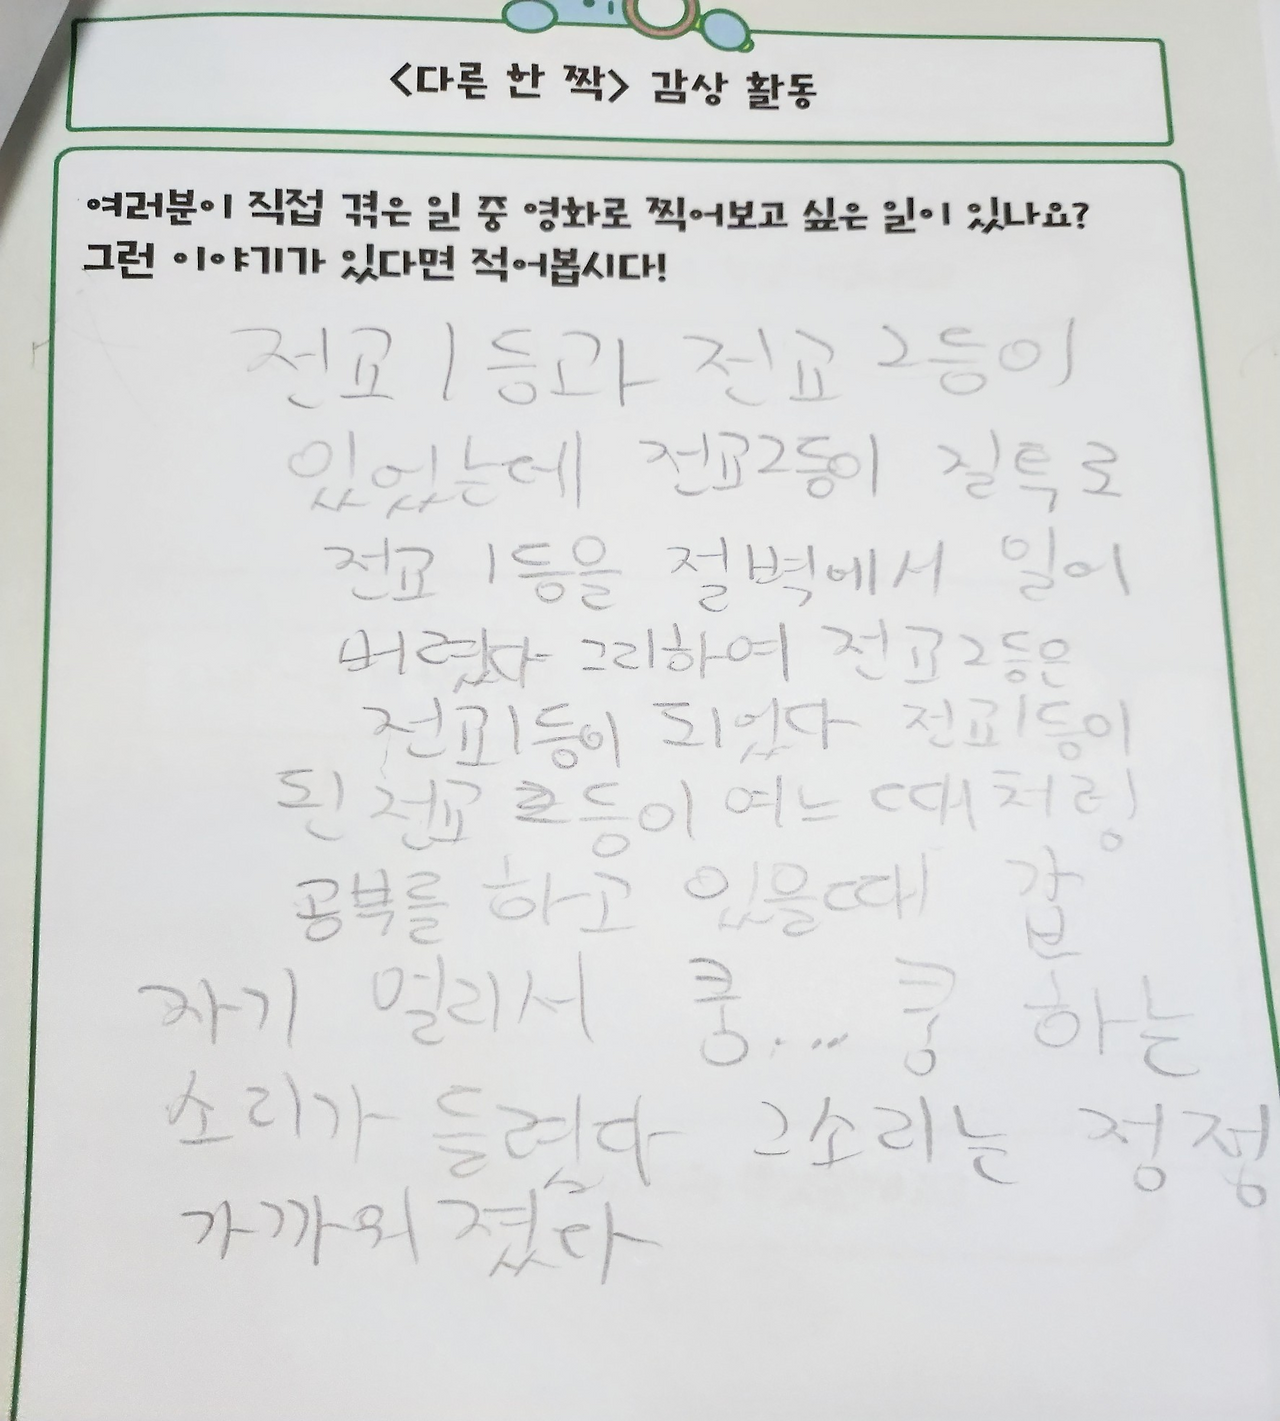 <다른 한 짝> 감상 활동
여러분이 직접 겪은 일 중 영화로 찍어보고 싶은 일이 있나요?
그런 이야기가 있다면 적어봅시다!
전교 1등과 전교 2등이
있었는데 전교2등이 질투로
전교 1등을 절벽에서 일어
버렸다 그리하여 전교2등은
전교1등이 되었다 전교1등이
된 전교 2등이 여느 때처렁
공부를 하고 있을때 갑
자기 멀리서 쿵... 쿵 하는
소리가 들렸다 그소리는 정정
가까워 졌다